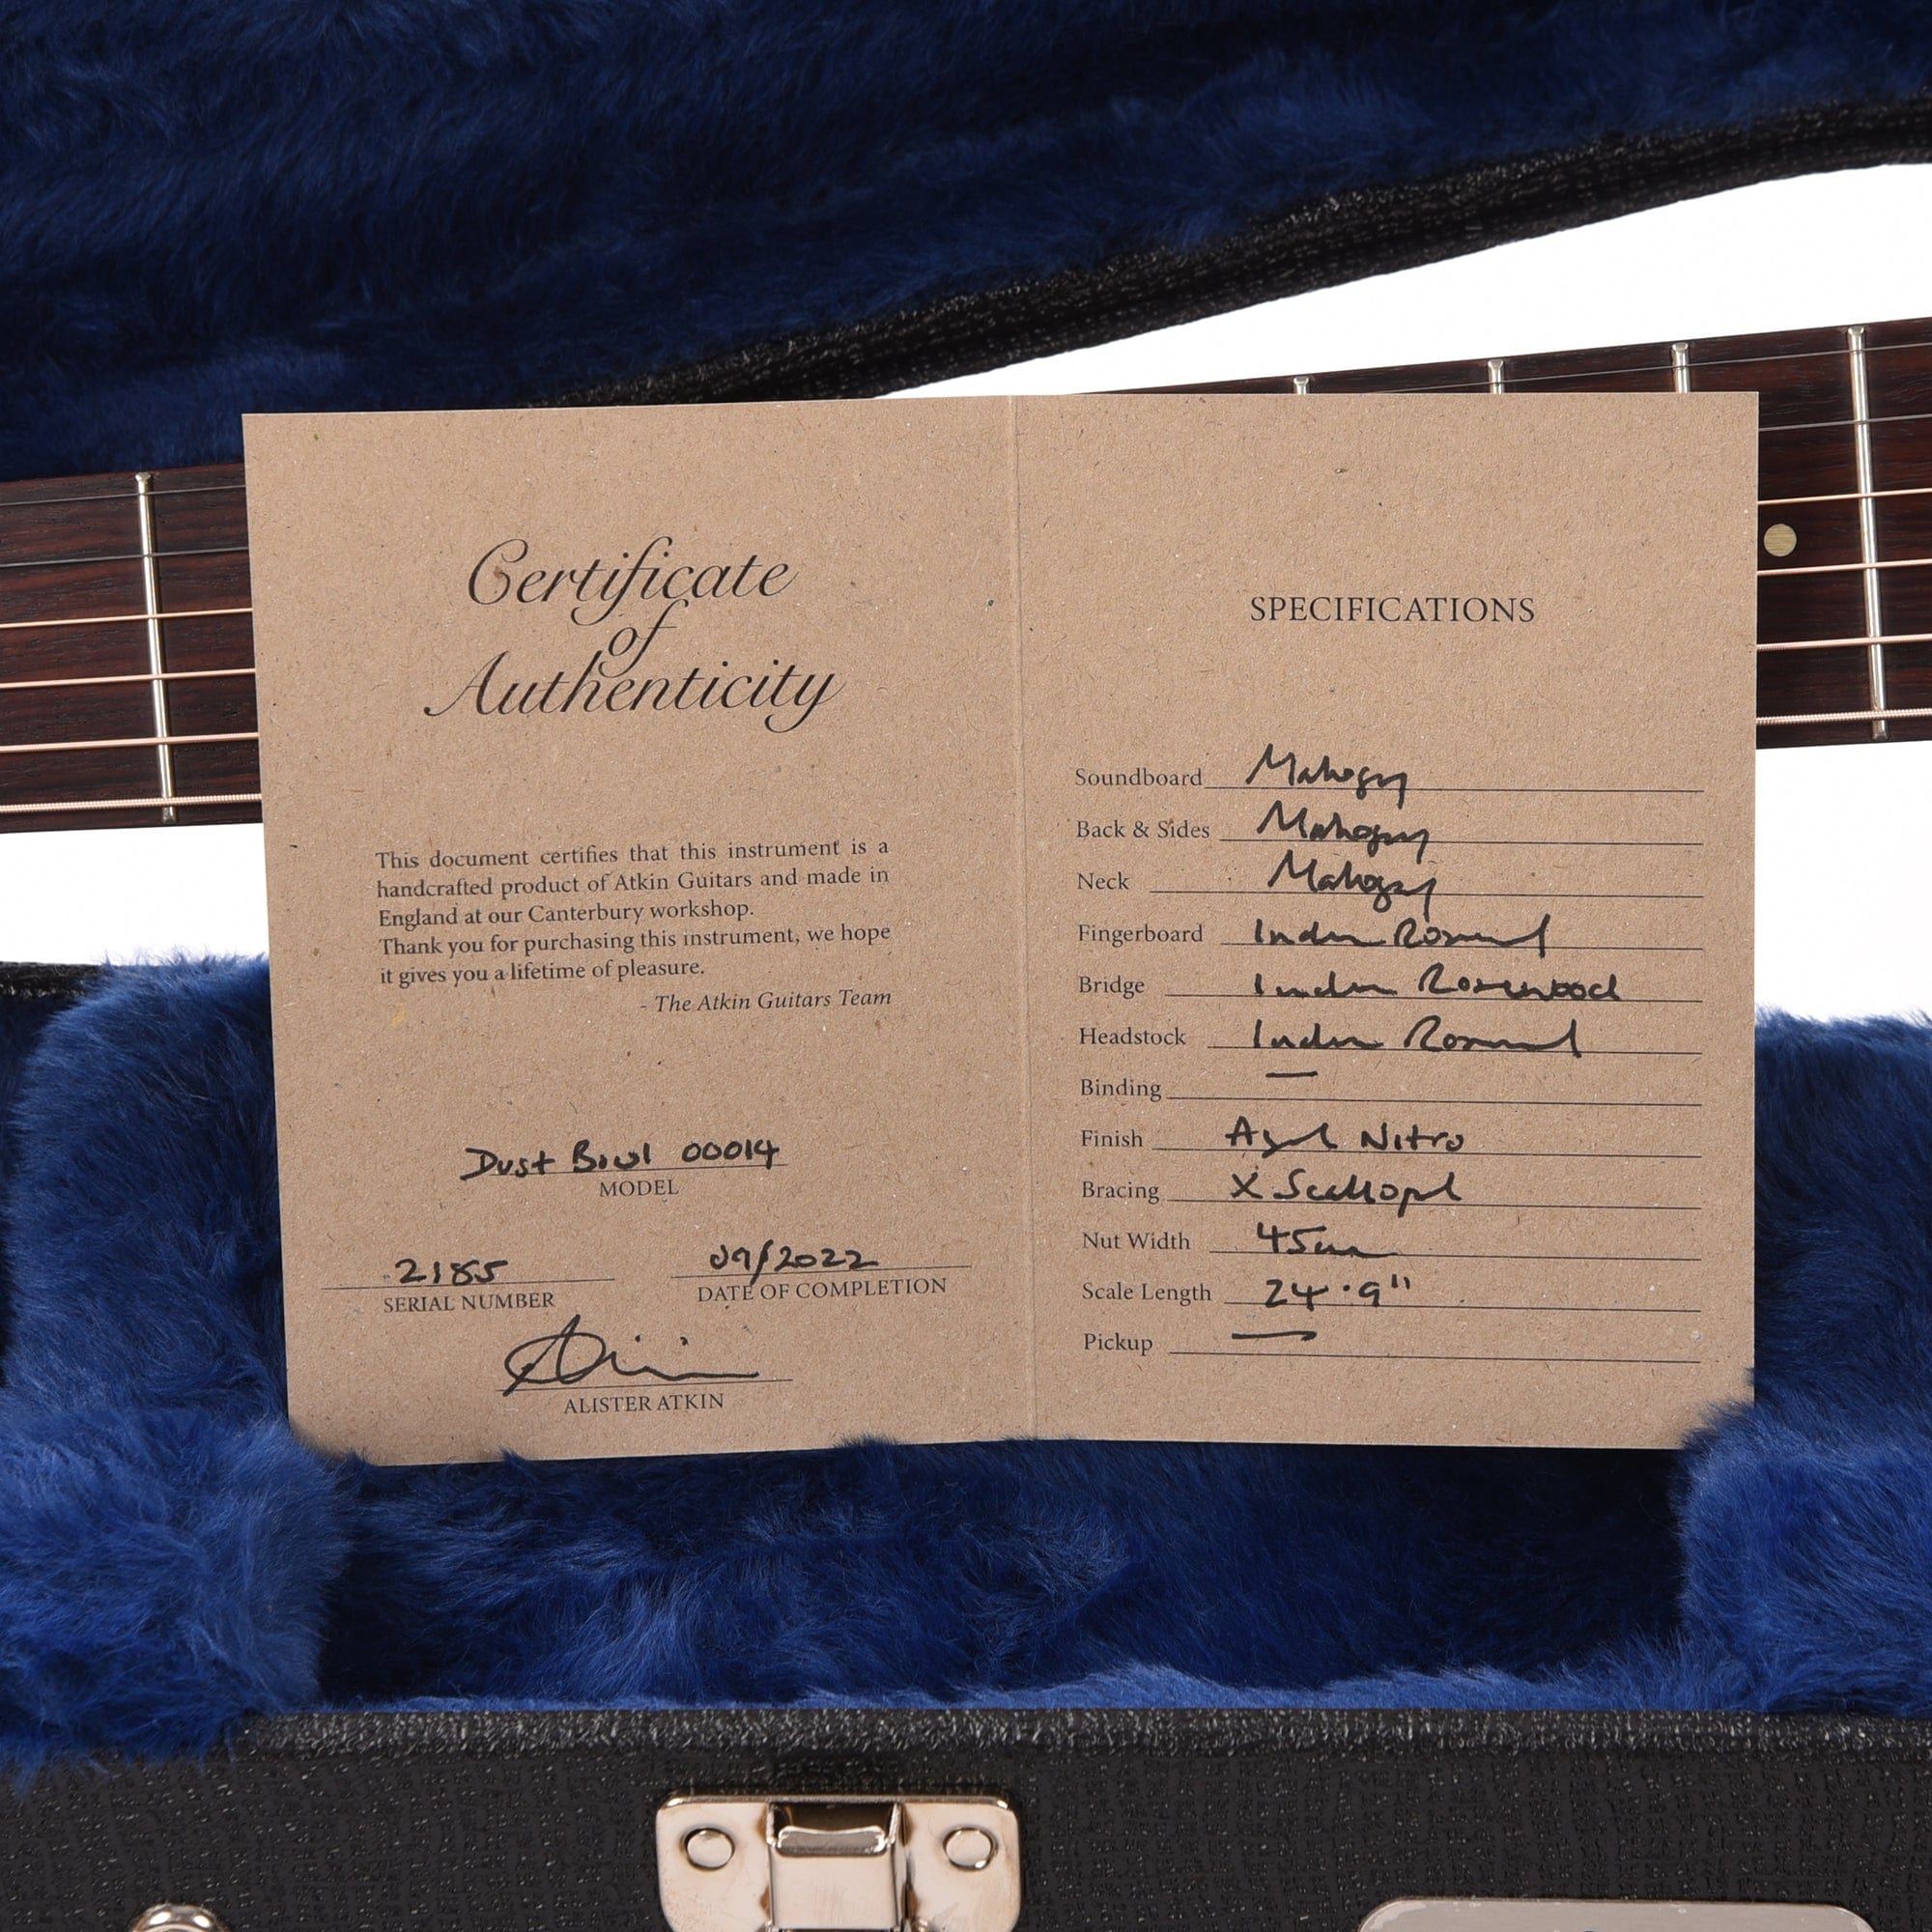 Certificate
of
Authenticity
This document certifies that this instrument is a
handcrafted product of Atkin Guitars and made in
England at our Canterbury workshop.
Thank you for purchasing this instrument, we hope
it gives you a lifetime of pleasure.
- The Atkin Guitars Team
Dust Bowl 00014
MODEL
2185
SERIAL NUMBER
09/2022
DATE OF COMPLETION
ALISTER ATKIN
SPECIFICATIONS
Soundboard Mahogany
Back & Sides Mahogany
Neck Mahogany
Fingerboard Indian Rosewood
Bridge Indian Rosewood
Headstock Indian Rosewood
Binding —
Finish Aged Nitro
Bracing X Scalloped
Nut Width 45mm
Scale Length 24.9"
Pickup —